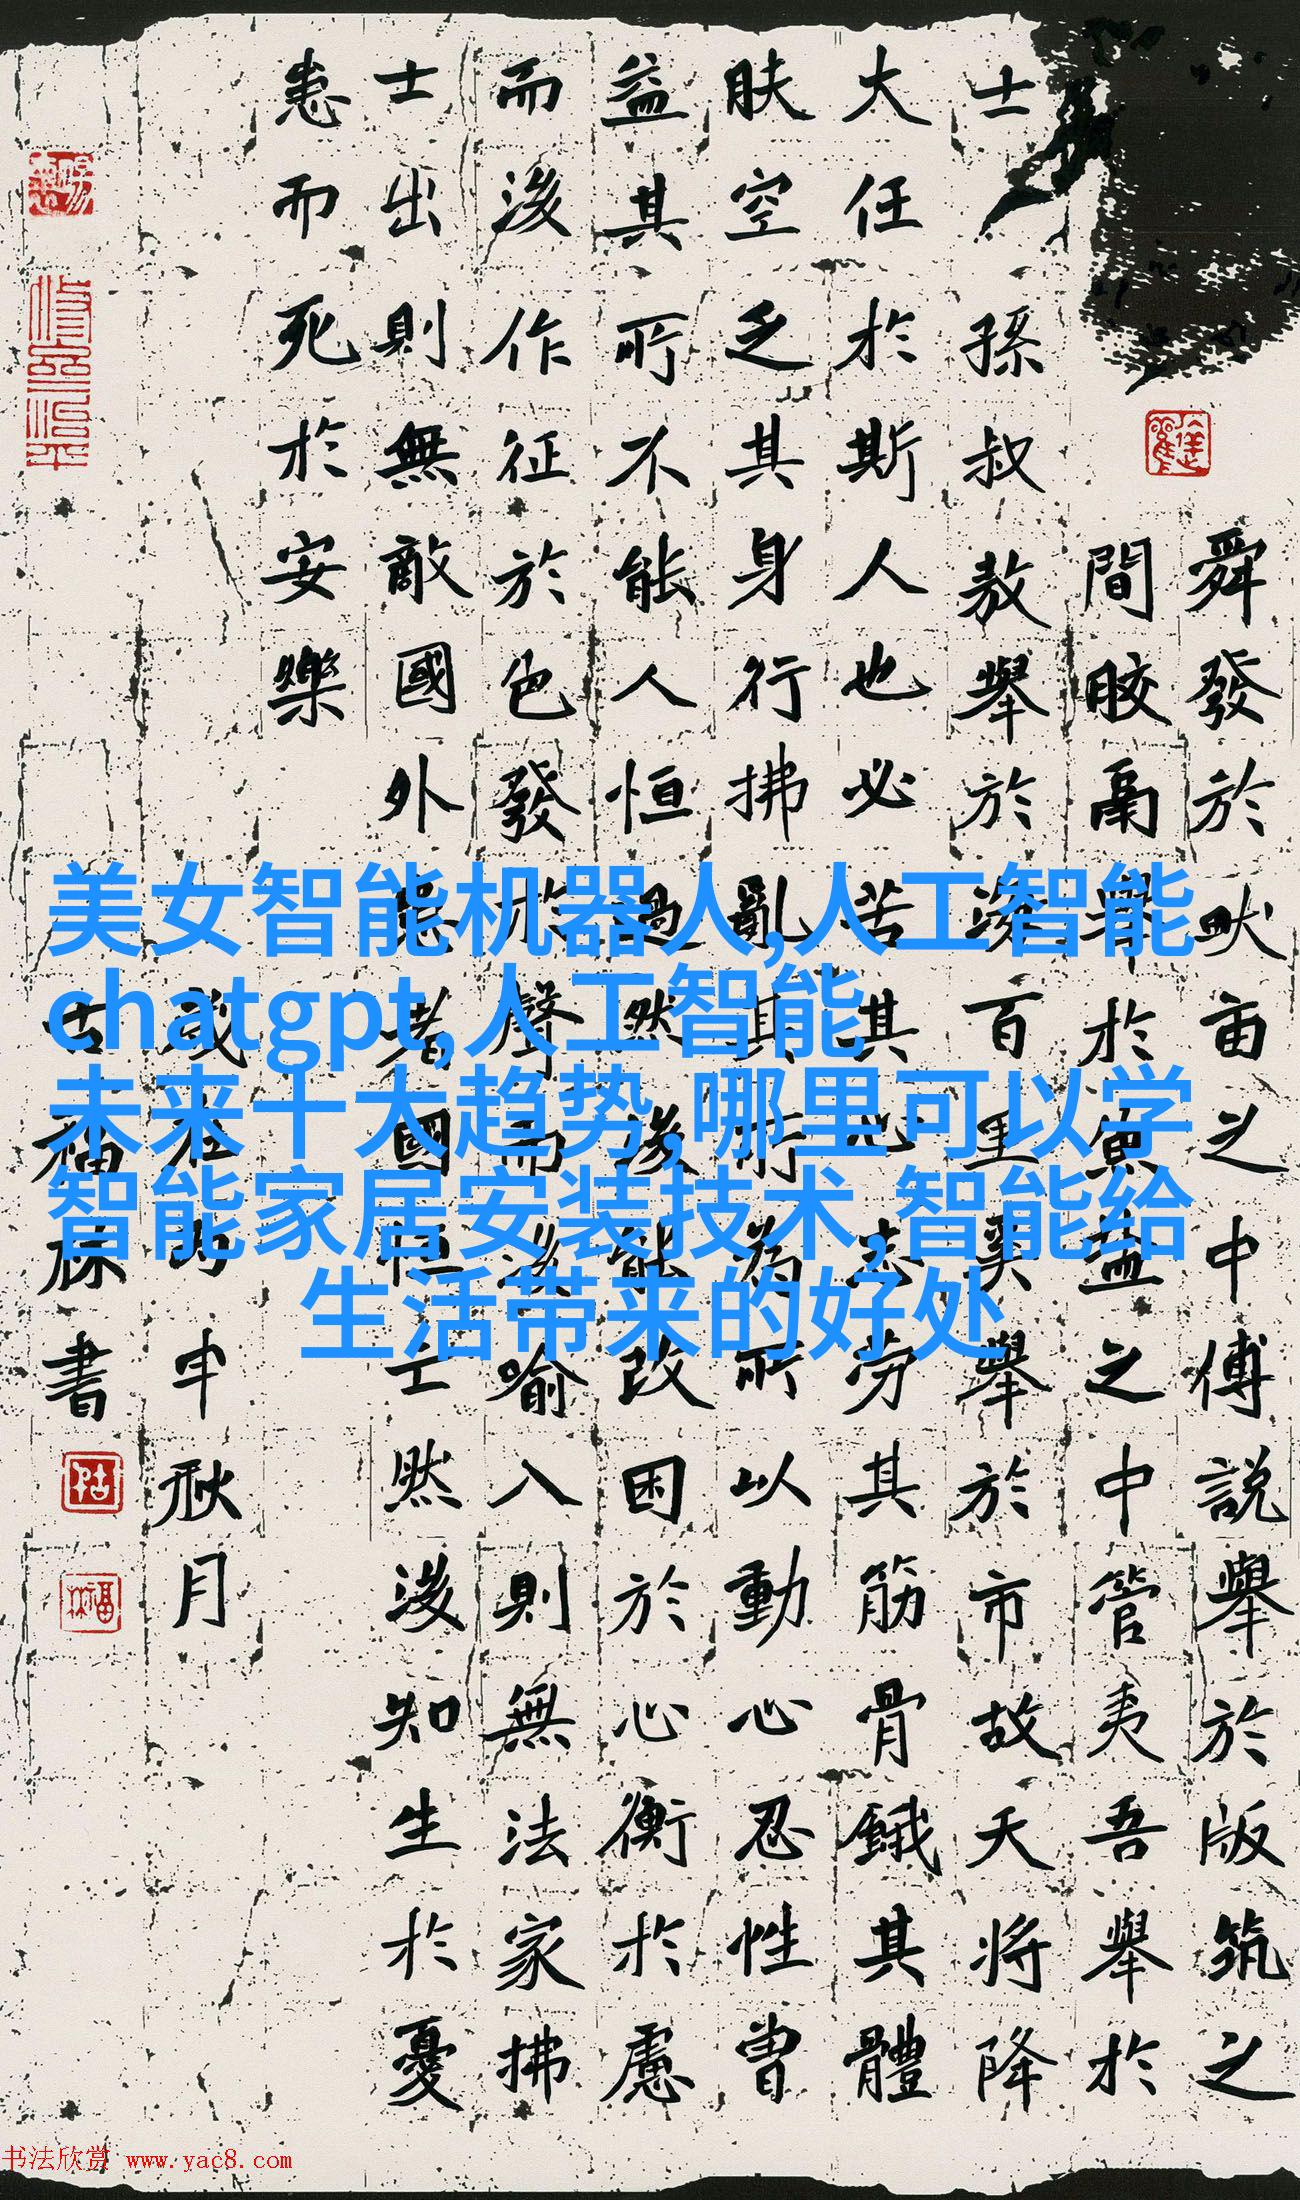 舜發於畎亩之中傅説舉於版筑之
間膠鬲舉於魚盐之中管夷吾舉於
士孫叔敖舉於海百里奚舉於市故天將降
大任於斯人也必苦其心志劳其筋骨餓其體
肤空乏其身行拂亂其所為所以動心忍性曾
益其所不能人恒過然後能改困於心衡於慮
而後作征於色發於聲而後喻入則無法家拂
士出則無敵國外患者國恒亡然後知生於憂
患而死於安樂
歲在 申秋月
古福 書
美女智能机器人,人工智能
chatgpt,人工智能
未来十大趋势,哪里可以学
智能家居安装技术,智能给
生活带来的好处
书法欣赏 www.yac8.com